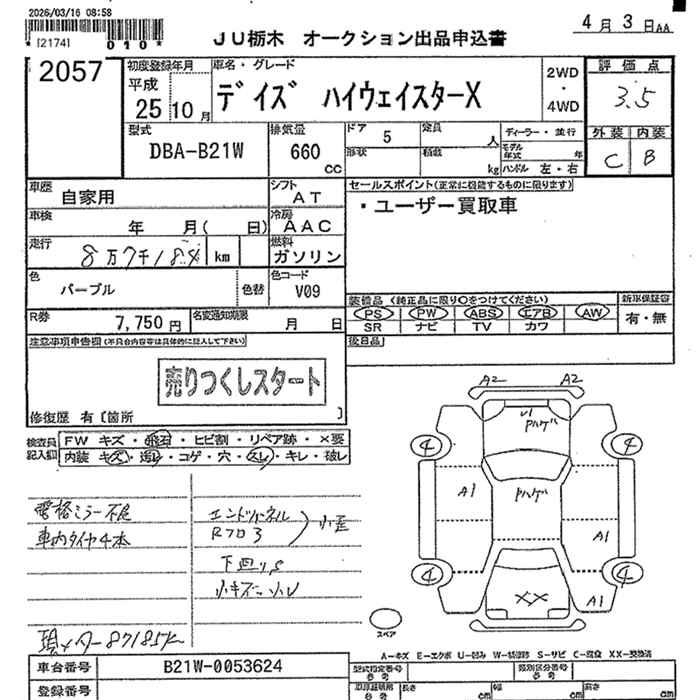 2026/03/16 08:58
* [2174] 010*
JU栃木 オークション出品申込書
4月 3日AA
2057
初度登録年月
平成
25 10月
車名・グレード
デイズ ハイウェイスターX
2WD
・
4WD
評価点
3.5
型式
DBA-B21W
排気量
660
cc
ドア 5
定員 人
形状
積載 kg
ディーラー・並行
モデル年式 年
ハンドル 左・右
外装 内装
C B
車歴
自家用
シフト
AT
セールスポイント(正常に機能するものに限ります)
・ユーザー買取車
車検
年 月( 日)
冷房
AAC
走行
8万7千184 km
燃料
ガソリン
色
パープル
色替
色コード
V09
装備品 (純正品に限り○をつけてください)
PS PW ABS エアB AW
SR ナビ TV カワ
新車保証書
有・無
R券
7,750円
名変通知期限
月 日
後日品
注意事項申告欄(不具合内容等は具体的に記入して下さい)
売りつくしスタート
修復歴 有〔箇所 〕
検査員
記入欄
FW キズ・飛石・ヒビ割・リペア跡・×要
内装 キズ・汚レ・コゲ・穴・スレ・キレ・破レ
電格ミラー不良
車内タイヤ4本
エンドパネル
Rフロア
小歪
下回りS
小キズ、小U
現メーター87185K
A2 A2
U1
Pハゲ
4 4
A1
Pハゲ
A1
4 4
XX
A1
スペア
A-キズ E-エクボ U-凹み W-補修跡 S-サビ C-腐食 XX-交換済
車台番号
B21W-0053624
登録番号
型式指定番号
参考
類別区分番号
参考
長さ cm
幅 cm
高さ cm